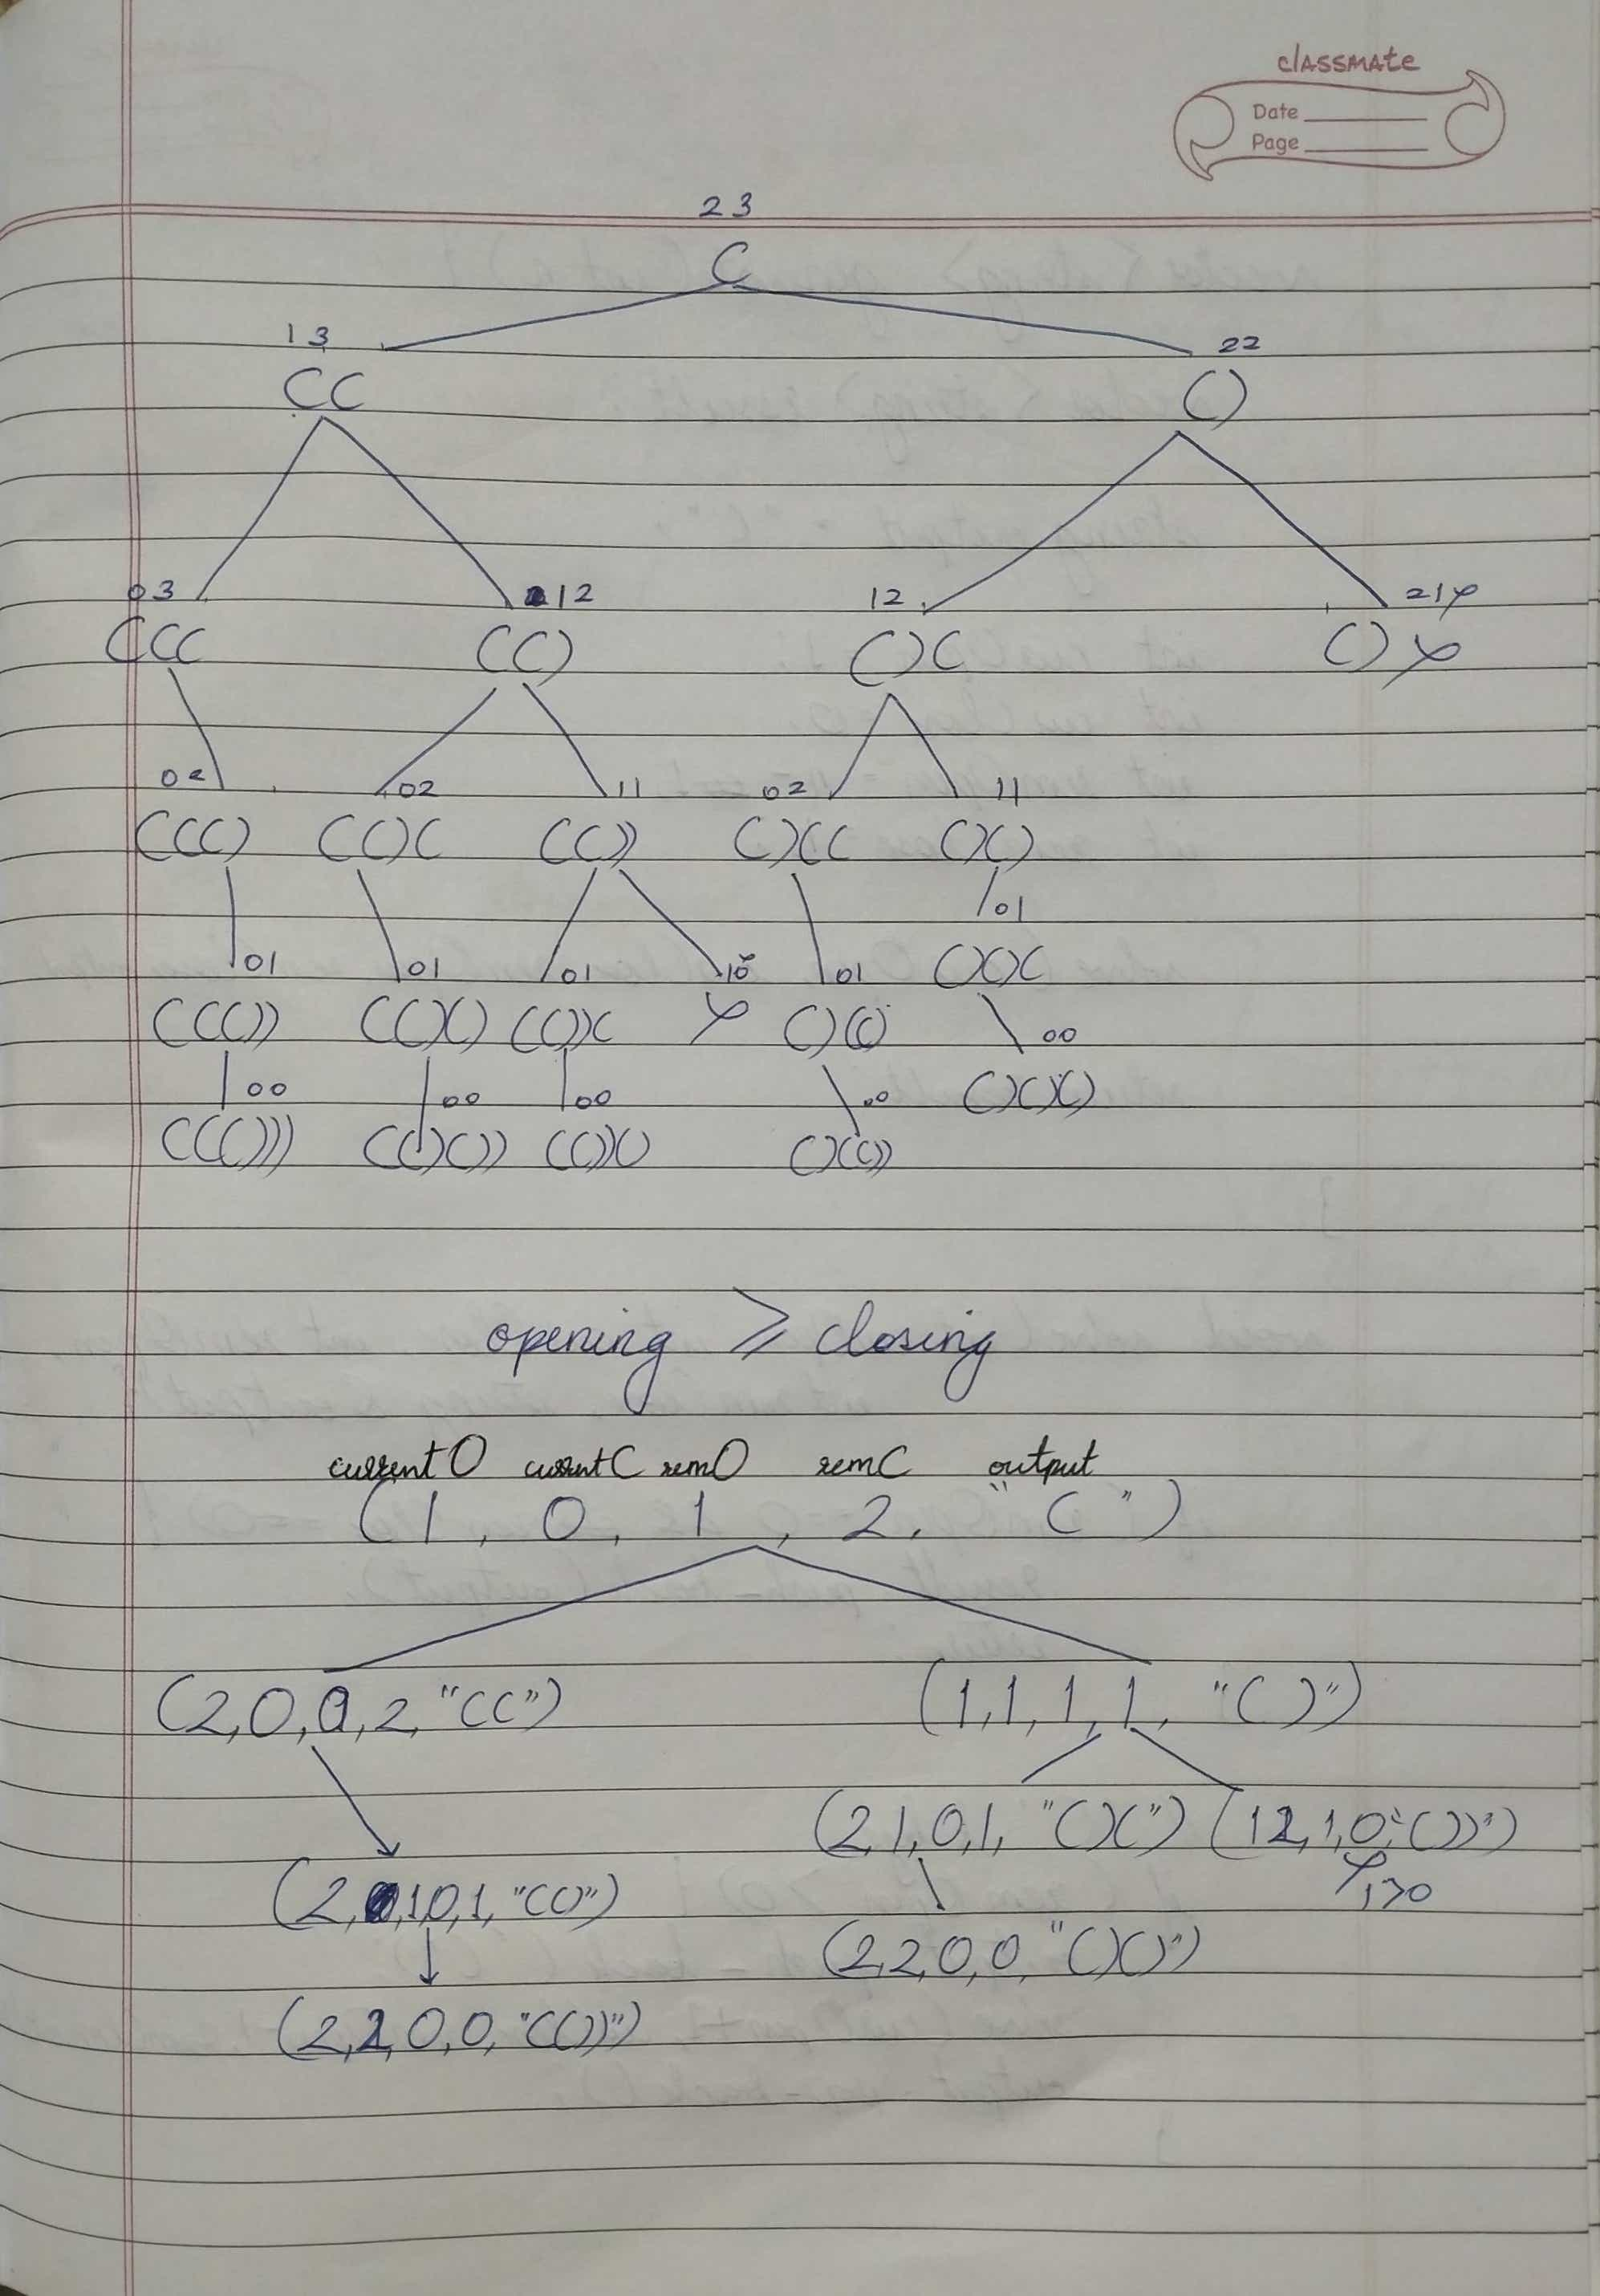 classmate
Date
Page
23
(
13 22
(( ()
03 12 12 21
((( (() ()( ()
02 02 11 02 11
((() (()( (()) ()(( ()()
01
01 01 01 10 01 ()()(
((()) (()() (())( ()(() 00
00 00 00 00 ()()()
((())) (()()) (())() ()(())
opening ≥ closing
currentO currentC remO remC output
(1, 0, 1, 2, "(")
(2,0,0,2,"((") (1,1,1,1,"()")
(2,1,0,1,"()(") (1,2,1,0,"())")
1>0
(2,1,0,1,"(()")
(2,2,0,0,"()()")
(2,2,0,0,"(())")